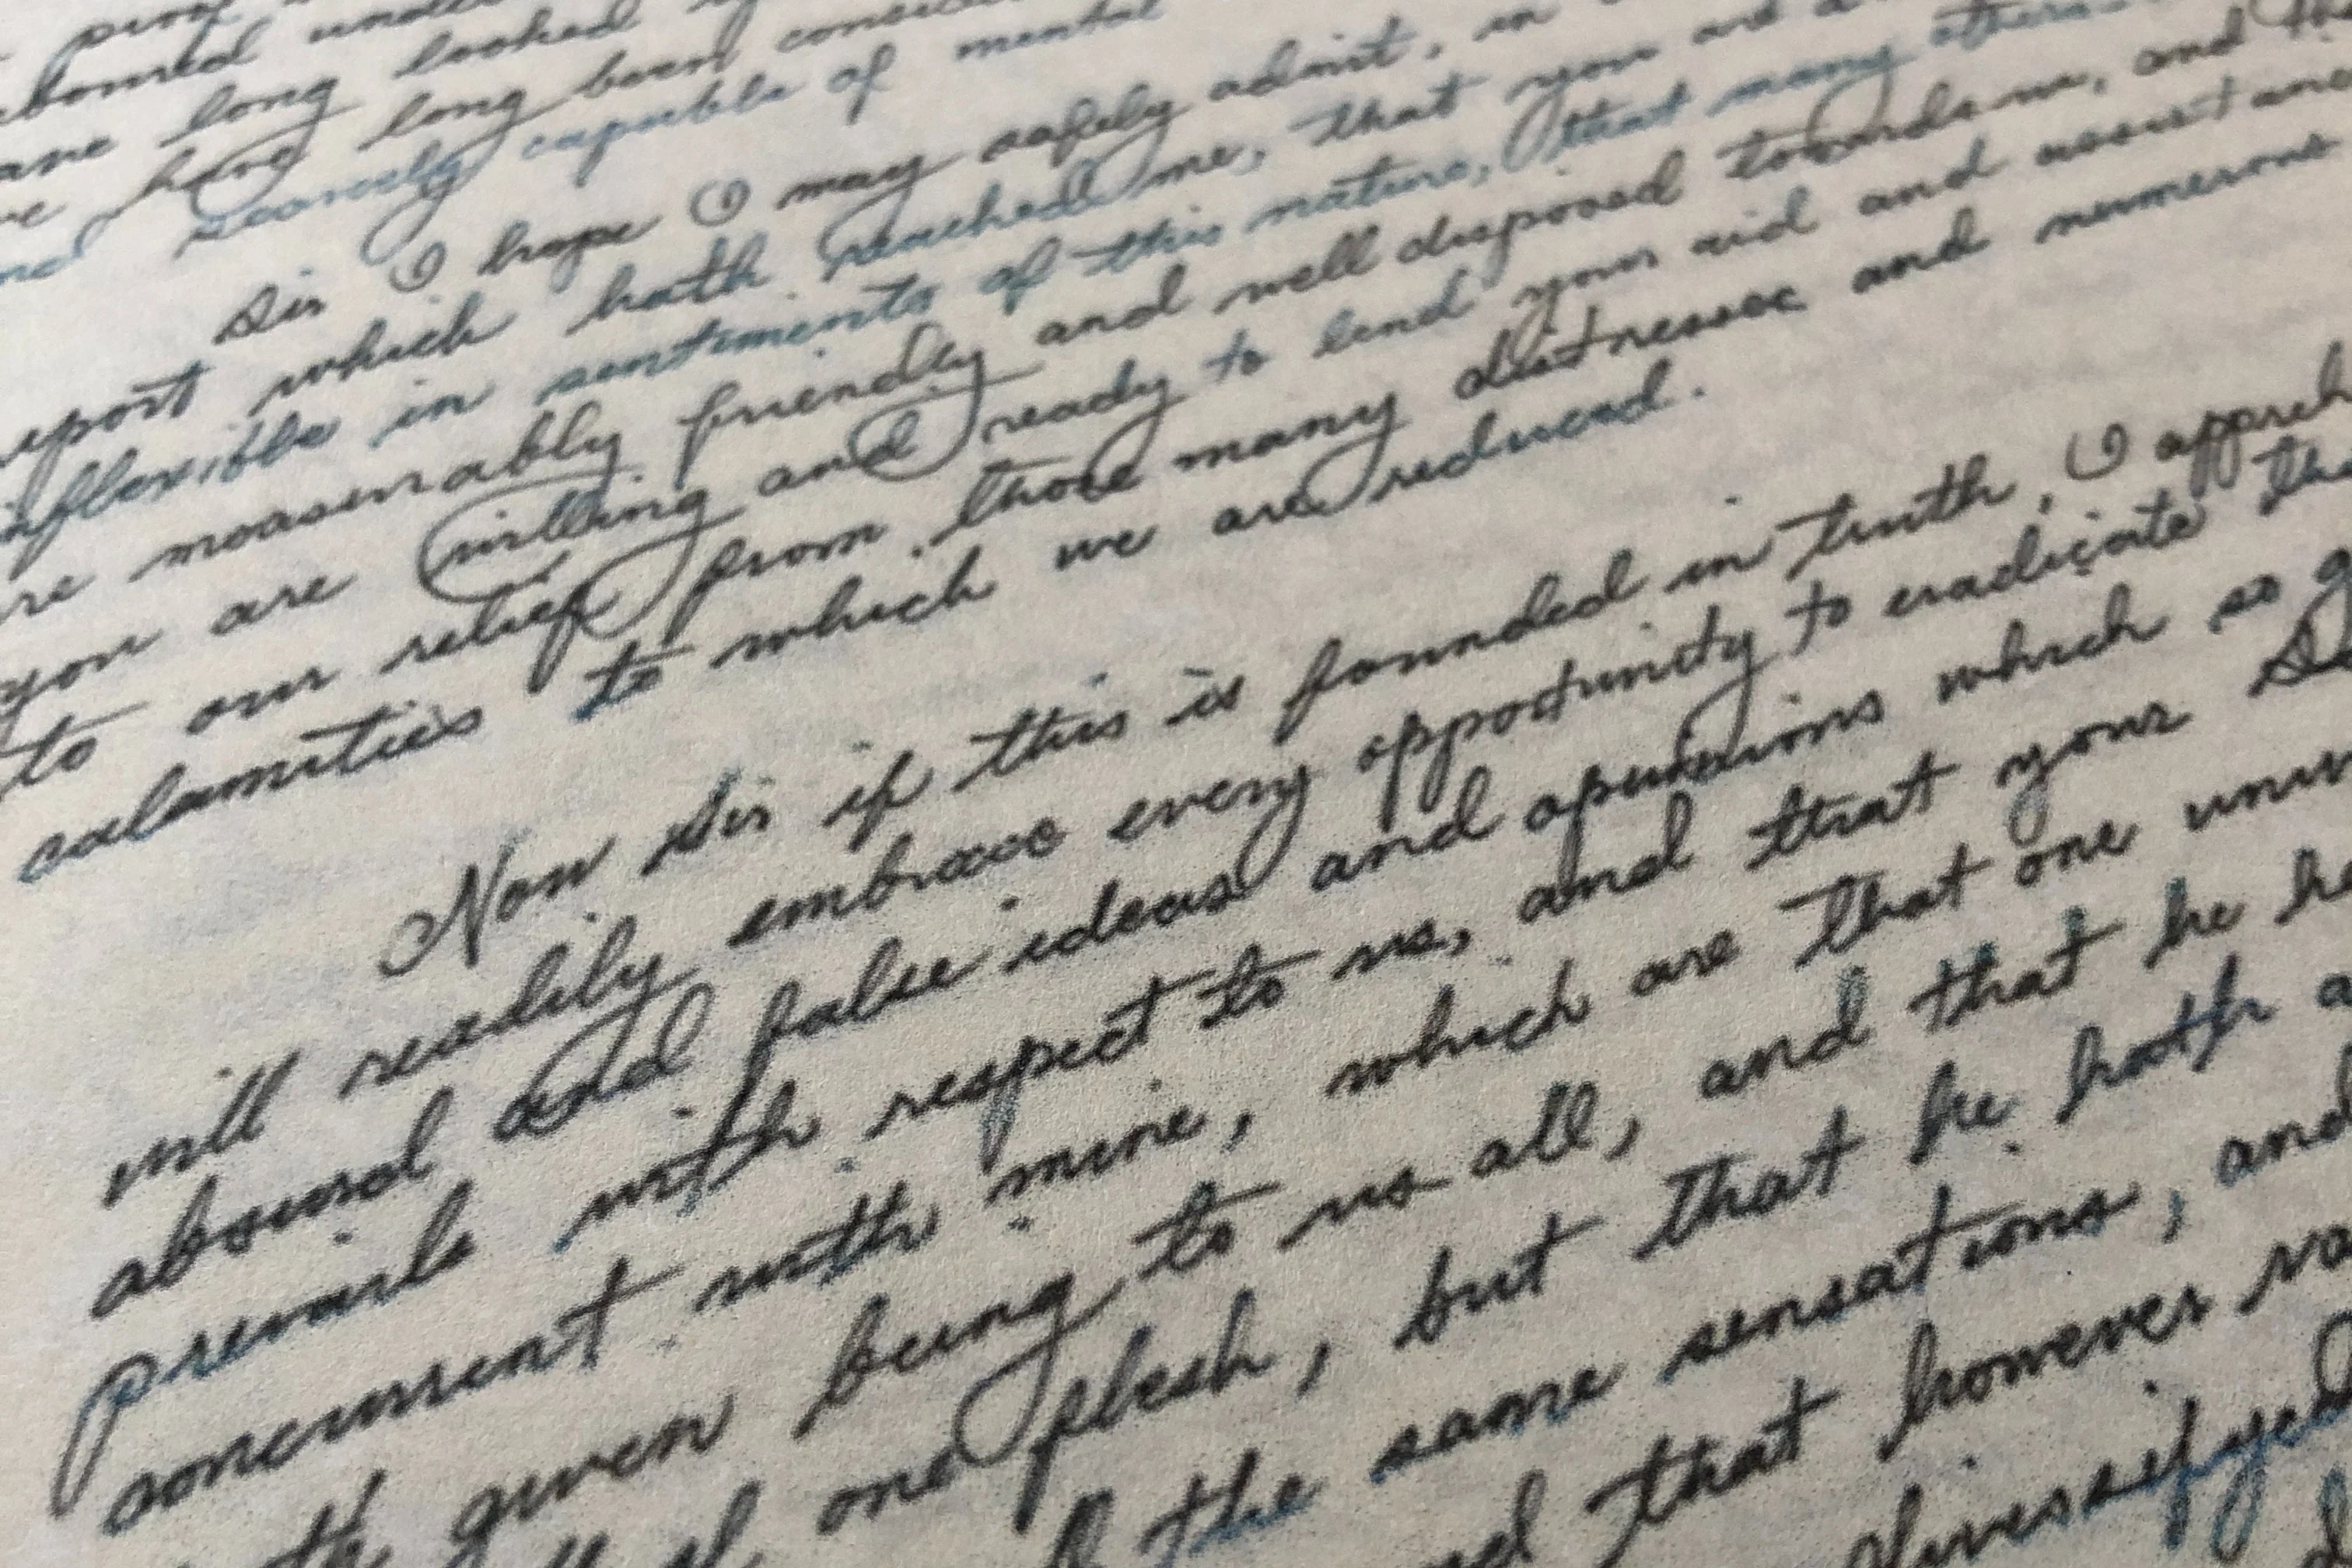 long looked
have long been
scarcely capable of mental
Sir I hope I may safely admit, in
report which hath reached me, that you are
inflexible in sentiments of this nature, that many others
measurably friendly and well disposed towards us, and
you are willing and ready to lend your aid and assist
to our relief from those many distresses and numerous
calamities to which we are reduced.
Now Sir if this is founded in truth, I
will readily embrace every opportunity to eradicate
absurd and false ideas and which so
prevails with respect to us, and that your
concurrent with mine, which are that one
given being to us all, and that he
one flesh, but that he hath
the same sensations, and
that however